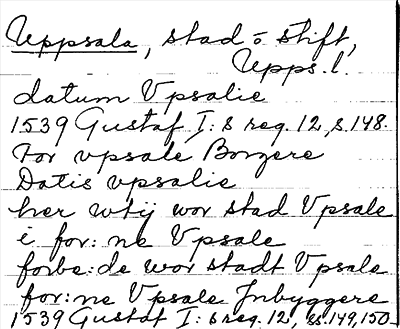 Uppsala, stad o stift,
Upps. l.
datum Vpsalie
1539 Gustaf I: s reg. 12, s. 148.
For vpsale Borgere
Datis vpsalie
her wtij wor stad Vpsale
i for: ne Vpsale
forbe: de wor stadt Vpsale
for: ne Vpsale Jnbyggere
1539 Gustaf I: s reg. 12, s. 149, 150